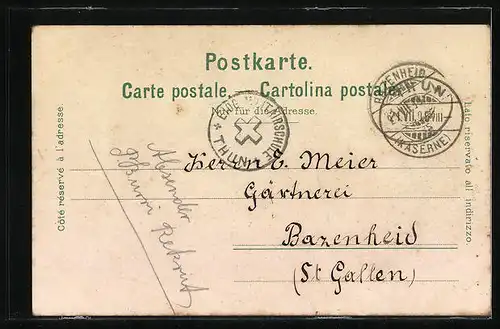 Postkarte.
Carte postale. Cartolina postale.
Nur für die Adresse.
Côté réservé à l'adresse.
Lato riservato all indirizzo.
THUN
BAZENHEID
THUN
(KASERNE)
Herrn E. Meier
Gärtnerei
Bazenheid
(St Gallen)
Absender
Rekrut